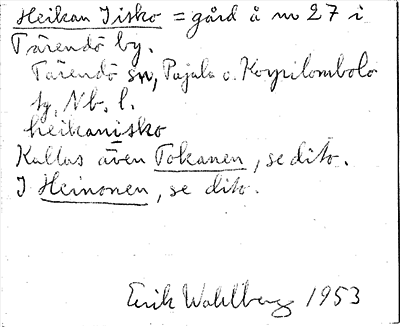 Heikan Iisko = gård å nr 27 i
Tärendö by.
Tärendö sn, Pajala o. Korpilombolo
tg, Nb. l.
heikanisko
Kallas även Tokanen, se dito.
I Heinonen, se dito.
Erik Wahlberg 1953